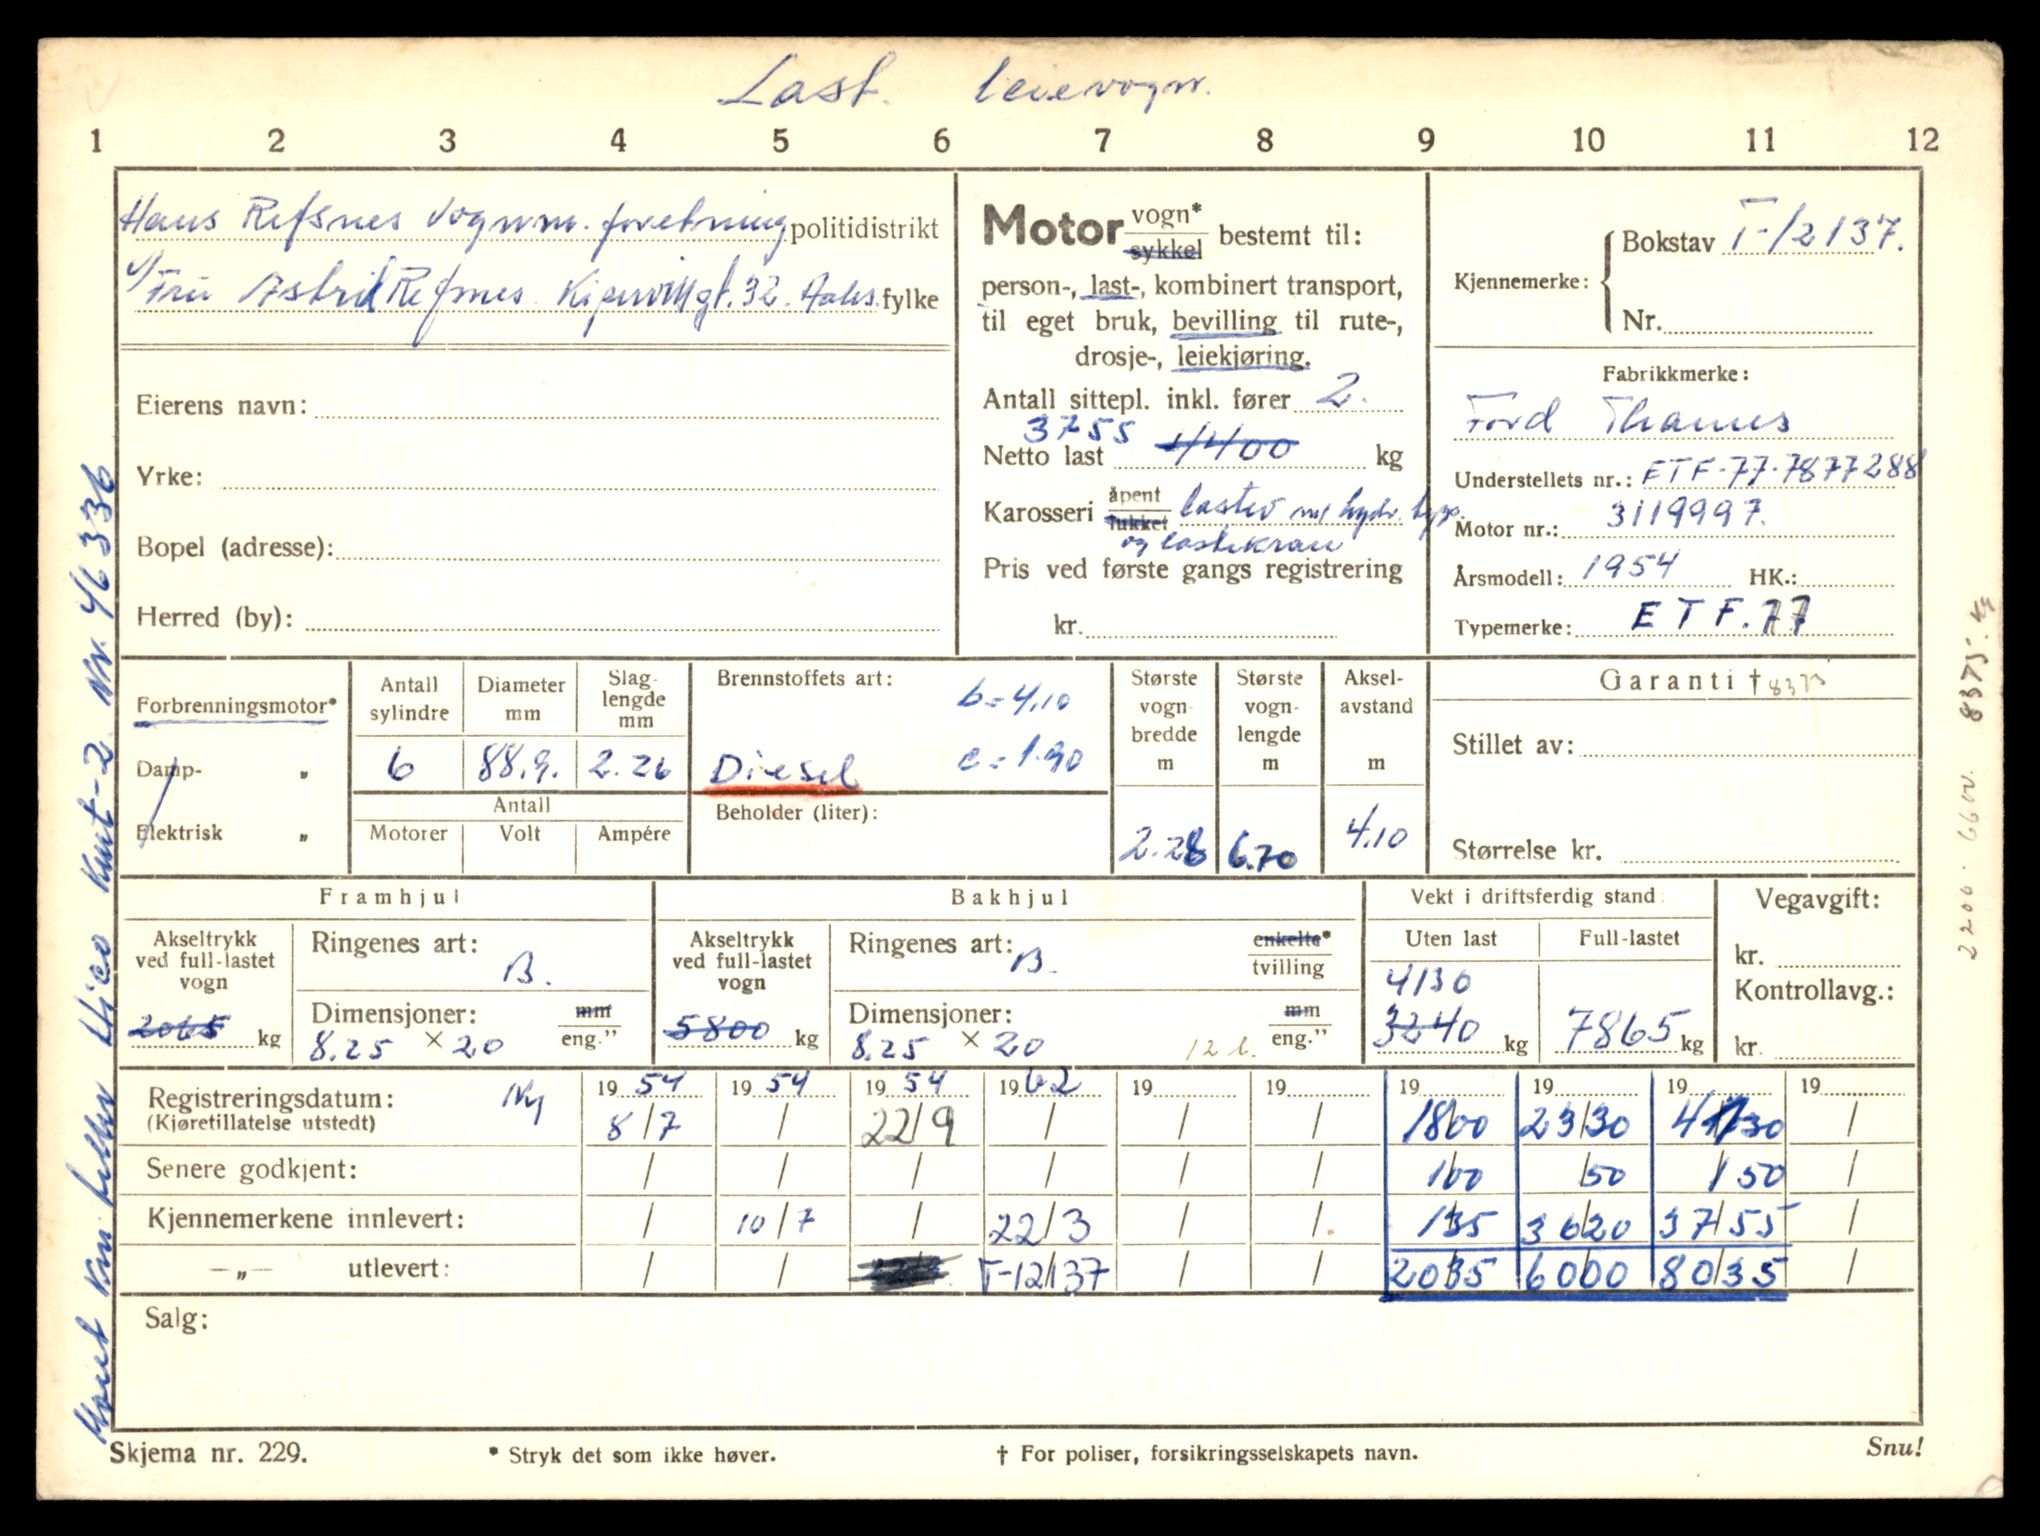 Last. leievogn.
1 2 3 4 5 6 7 8 9 10 11 12
Hans Refsnes Vognm. forretning politidistrikt
v/ Fru Astrid Refsnes 32. Aales. fylke
Eierens navn:
Yrke:
Bopel (adresse):
Herred (by):
Motor vogn* sykkel bestemt til:
person-, last-, kombinert transport,
til eget bruk, bevilling til rute-,
drosje-, leiekjøring.
Antall sittepl. inkl. fører 2.
3755
Netto last 4400 kg
Karosseri åpent lukket lastev m/ hydr. tipp.
og lastekran
Pris ved første gangs registrering
kr.
Kjennemerke: Bokstav T-12137.
Nr.
Fabrikkmerke:
Ford Thames
Understellets nr.: ETF.77.7877288
Motor nr.: 3119997.
Årsmodell: 1954 HK.:
Typemerke: ETF.77
Forbrenningsmotor*
Damp- "
Elektrisk "
Antall sylindre Diameter mm Slag-lengde mm
6 88.9. 2.26
Antall
Motorer Volt Ampére
Brennstoffets art: b = 4.10
Diesel c = 1.90
Beholder (liter):
Største vogn bredde m 2.28
Største vogn-lengde m 6.70
Aksel-avstand m 4.10
Garanti † 8375
Stillet av:
Størrelse kr.
Framhjul
Akseltrykk ved full-lastet vogn 2065 kg
Ringenes art: B.
Dimensjoner: mm eng."
8.25 × 20
Bakhjul
Akseltrykk ved full-lastet vogn 5800 kg
Ringenes art: B. enkelte* tvilling
Dimensjoner: mm eng."
8.25 × 20 12 l.
Vekt i driftsferdig stand
Uten last Full-lastet
4130
3240 kg 7865 kg
Vegavgift:
kr.
Kontrollavg.:
kr.
Registreringsdatum: Ny 19 54 19 54 19 54 19 62 19 19 19 19 19 19
(Kjøretillatelse utstedt) 8/7 / 22/9 / / / 1800 2330 4130 /
Senere godkjent: / / / / / / 100 50 150 /
Kjennemerkene innlevert: / 10/7 / 22/3 / / 135 3620 3755 /
—„— utlevert: / / T-12137 / / 2035 6000 8035 /
Salg:
Skjema nr. 229. * Stryk det som ikke høver. † For poliser, forsikringsselskapets navn. Snu!
Knt-2. Nr. 46336
2200. 6600. 8375. kg